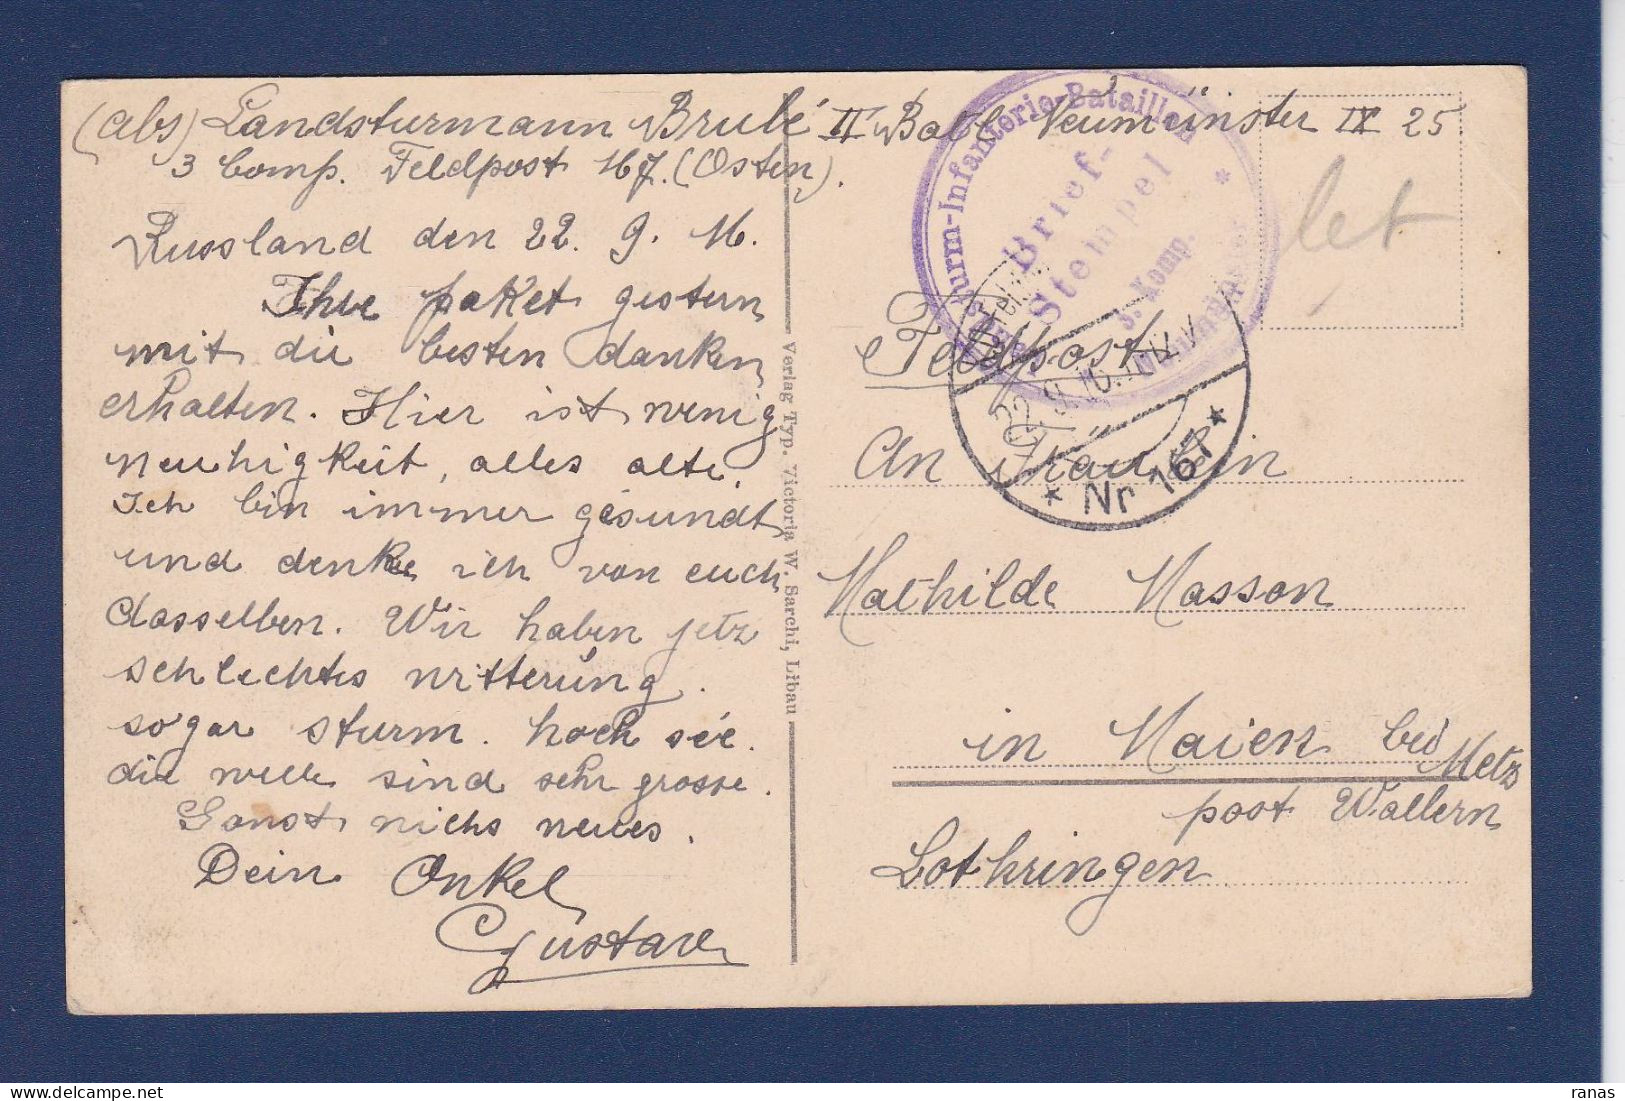 (abs) Landsturmann Brulé II Batl Neumünster IX 25
3 Comp. Feldpost 167. (Osten).
Russland den 22. 9. 16.
Ihre paket gestern
mit die besten danken
erhalten. Hier ist wenig
neuhigkeit, alles alte,
Ich bin immer gesundt,
und denke ich von euch
dasselben. Wir haben jetz
schlechtes witterung.
sogar sturm. hoch see.
die welle sind sehr grosse.
Sonst nichs neues.
Dein Onkel
Gustave
Verlag Typ. Victoria W. Sarchi, Libau
Infanterie-Bataillon
Brief-
Stempel
3. Komp.
*
let
Feldpost
22.9.16.
* Nr 167 *
An Fräulein
Mathilde Masson
in Maien bei Metz
post Wallern
Lothringen
ranas